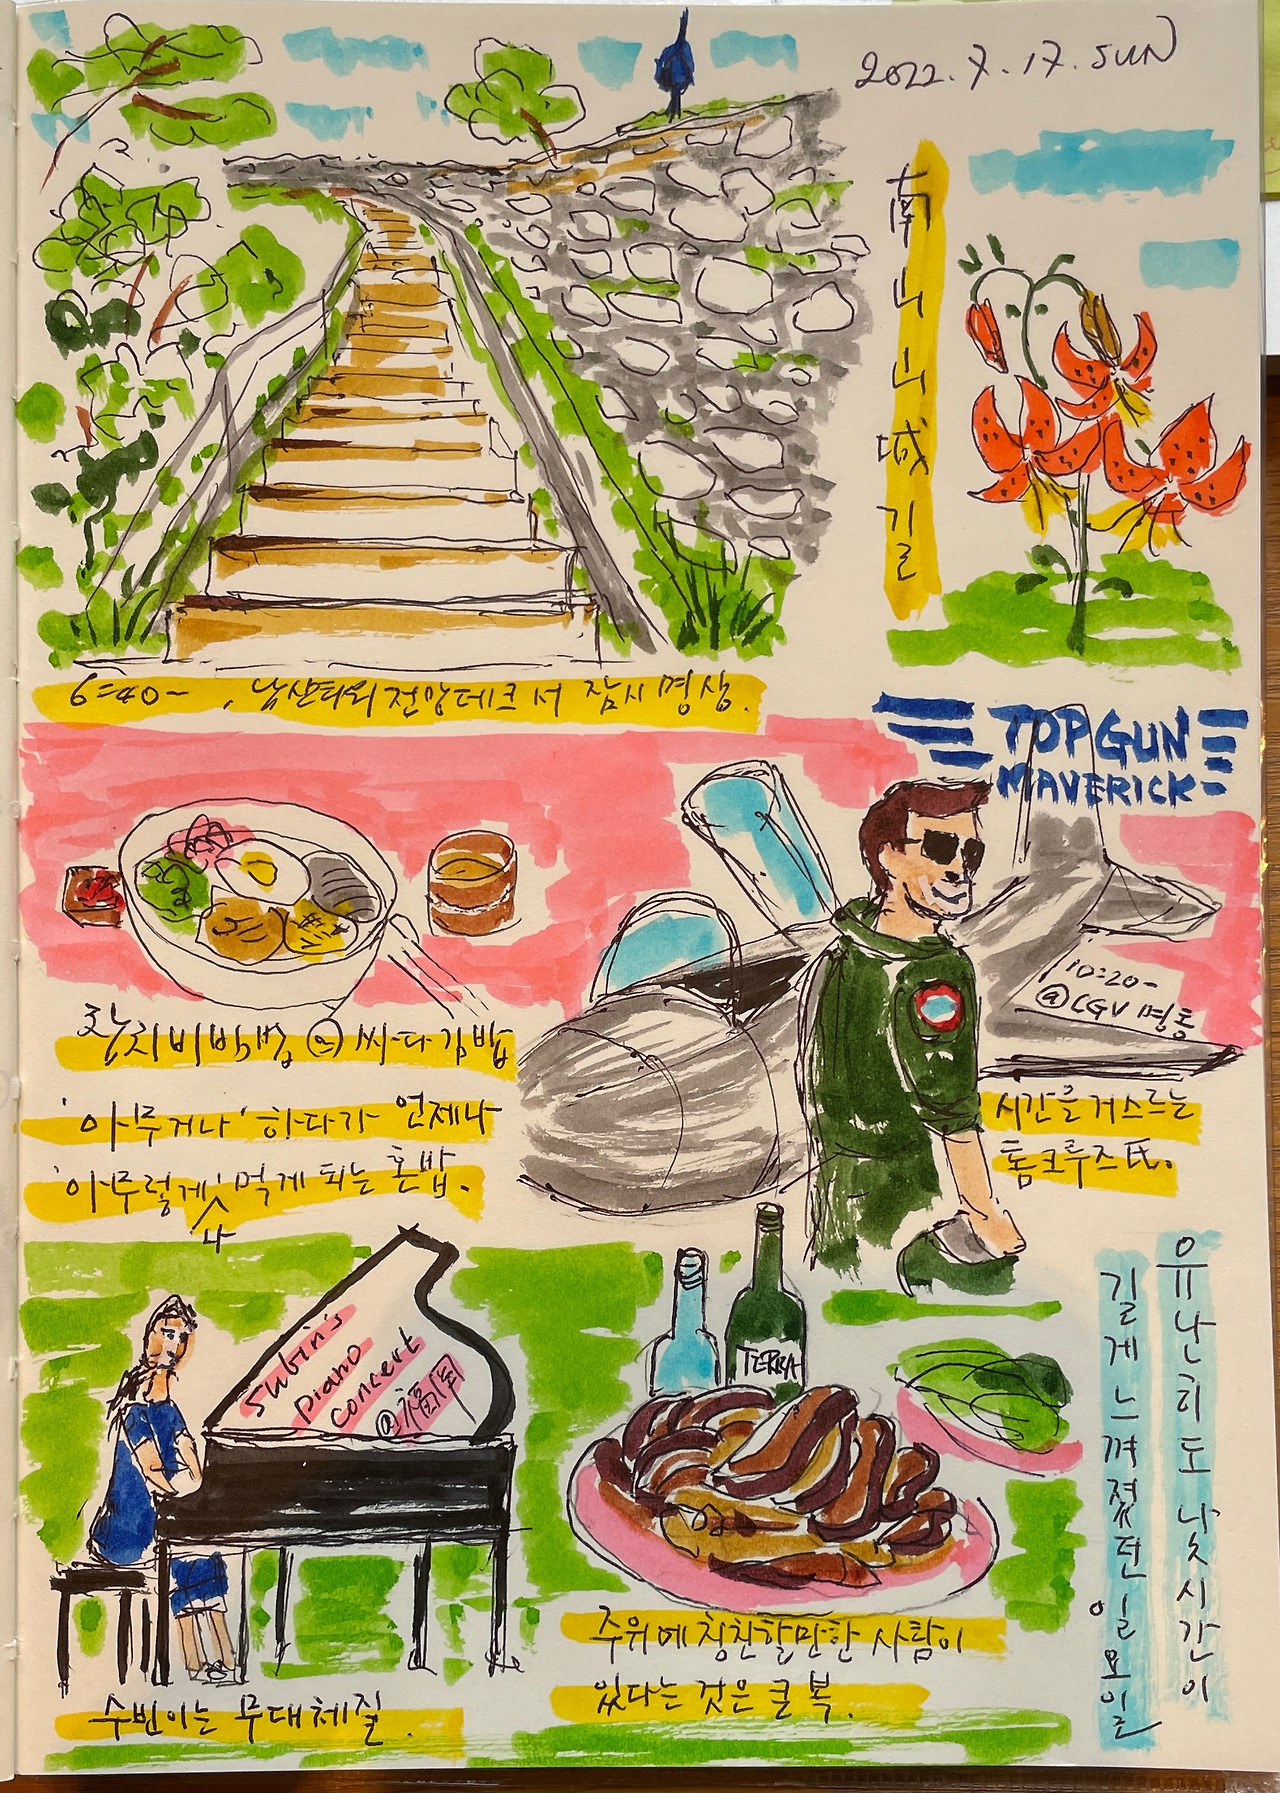 2022.7.17.SUN
南山山城길
6:40~, 남산타워 전망데크서 잠시 명상.
TOPGUN
MAVERICK
10:20~
@CGV 명동
시간을 거스르는
톰크루즈氏.
참치비빔밥 @ 싸다김밥
'아무거나' 하다가 언제나
'아무렇게' 먹게 되는 혼밥.
나
Subin's
piano
concert
@福
수빈이는 무대체질.
TERRA
주위에 칭찬할만한 사람이
있다는 것은 큰 복.
유난히도 낮시간이
길게 느껴졌던 일요일